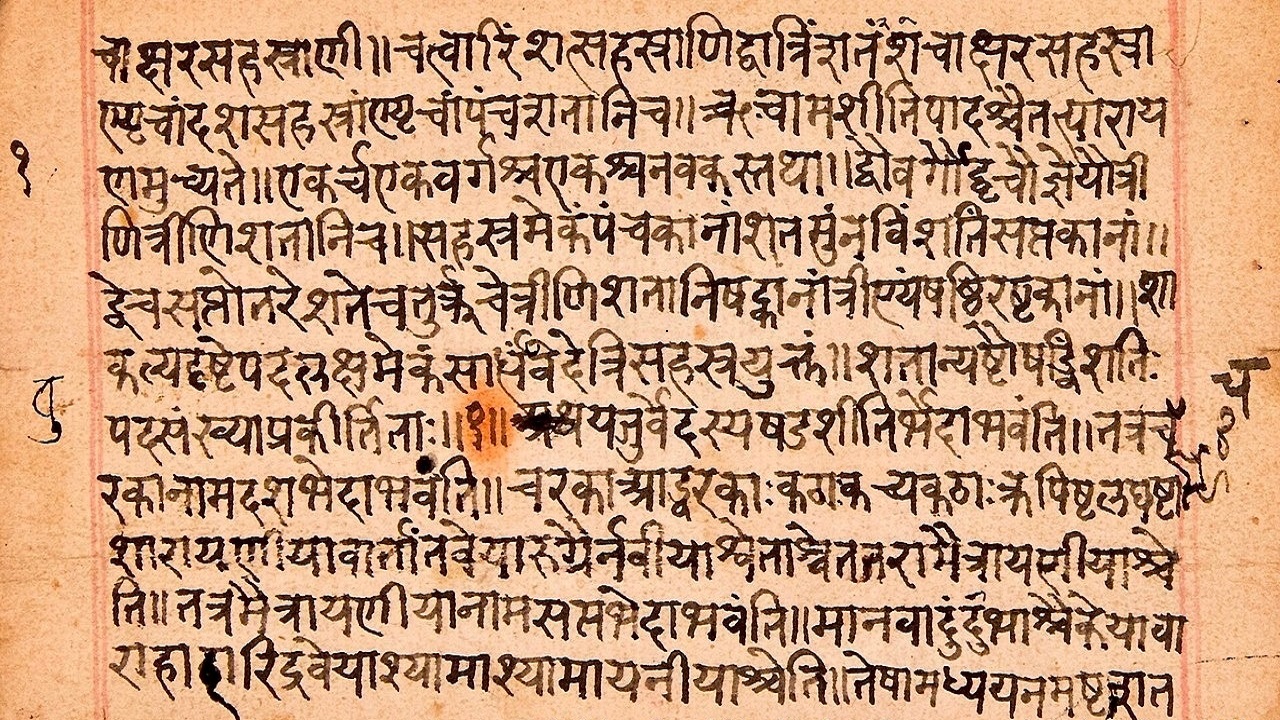 चाक्षरसहस्राणी॥चत्वारिंशत्सहस्राणिद्वात्रिंशतंशंचाक्षरसहस्रा
ण्यृचांदशसहस्राण्यृचांपंचशतानिच॥ऋचामशीतिपादश्चैतत्पाराय
१
णमुच्यते॥एकर्च्चएकवर्गश्चएकश्चनवकस्तथा॥द्वौवर्गौद्वृचौज्ञेयौत्री
णित्रीणिशतानिच॥सहस्रमेकंपंचकानांशतमुंनविंशतिसप्तकानां॥
द्वेचसप्तोतरेशतेचतुर्ऋचेत्रीणिशतानिषट्कानांत्रीण्यंषष्ठिरष्टकानां॥शा
कल्यदृष्टेपदलक्षमेकंसार्धंचवेदेत्रिसहस्रयुक्तं॥शतान्यष्टौषड्विंशतिः
पदसंख्याप्रकीर्तिताः॥१॥अथयजुर्वेदस्यषडशीतिर्भेदाभवंति॥तत्रच
रकानामदशभेदाभवंति॥चरकाआह्वरकाःकठाकच्यकठाः
शारायणीयावार्तांतवेया श्वेताश्वेततरामैत्रायणीयाश्चे
ति॥तत्रमैत्रायणीयानामसप्तभेदाभवंति॥मानवादुंदुभाश्चैकेयावा
राहाहारिद्रवेयाश्यामाश्यामायनीयाश्चेति॥तेषामध्ययनमष्टशत